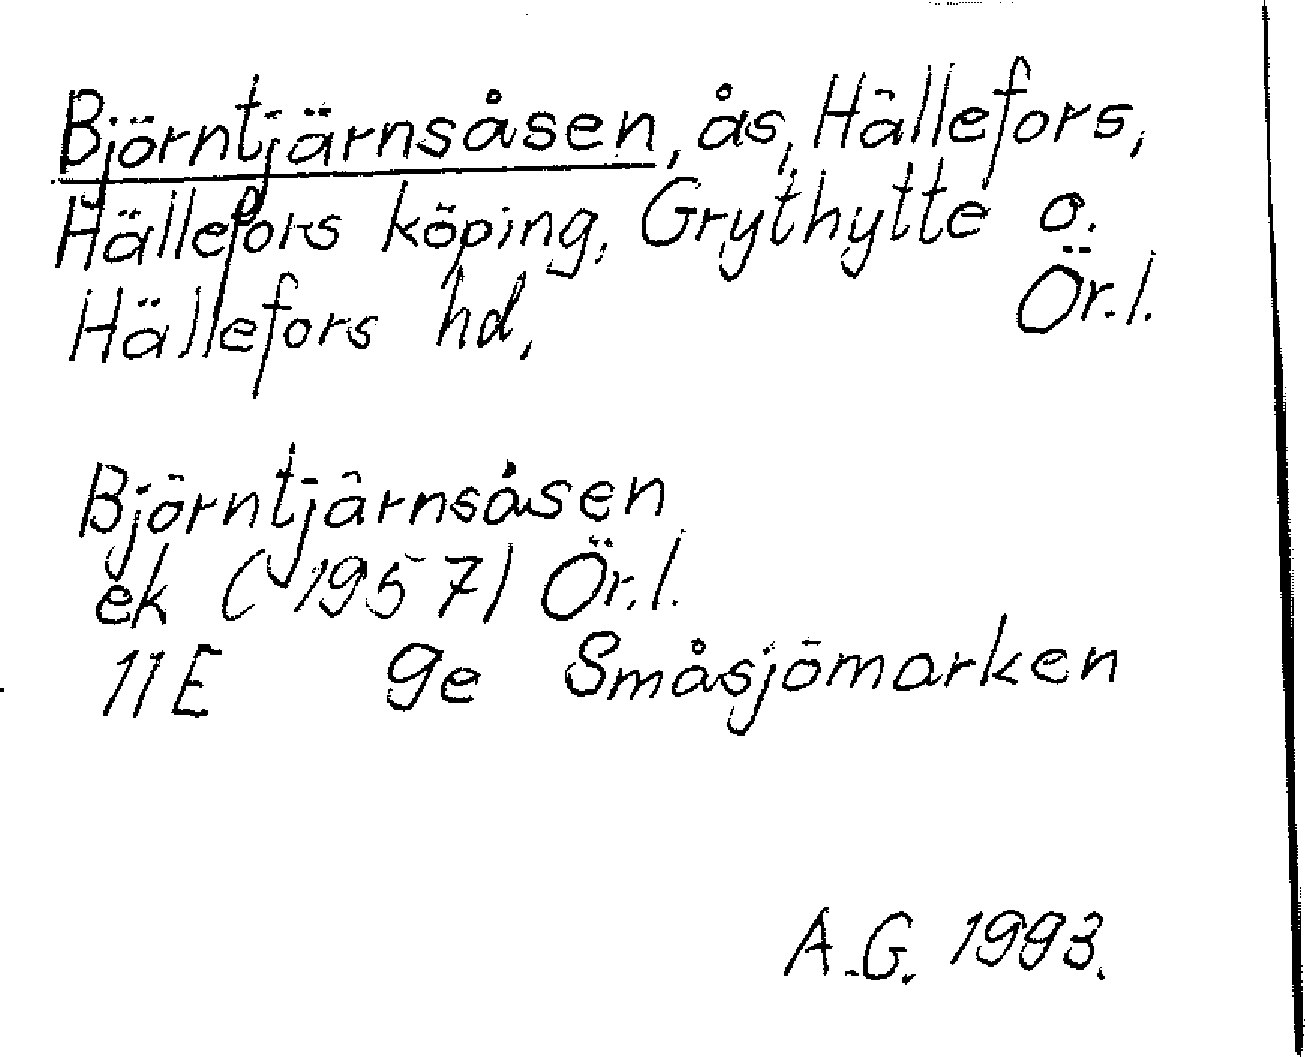 Björntjärnsåsen, ås, Hällefors,
Hällefors köping, Grythytte o.
Hällefors hd, Ör.l.
Björntjärnsåsen
ek (1957) Ör.l.
11E 9e Småsjömarken
A.G. 1993.